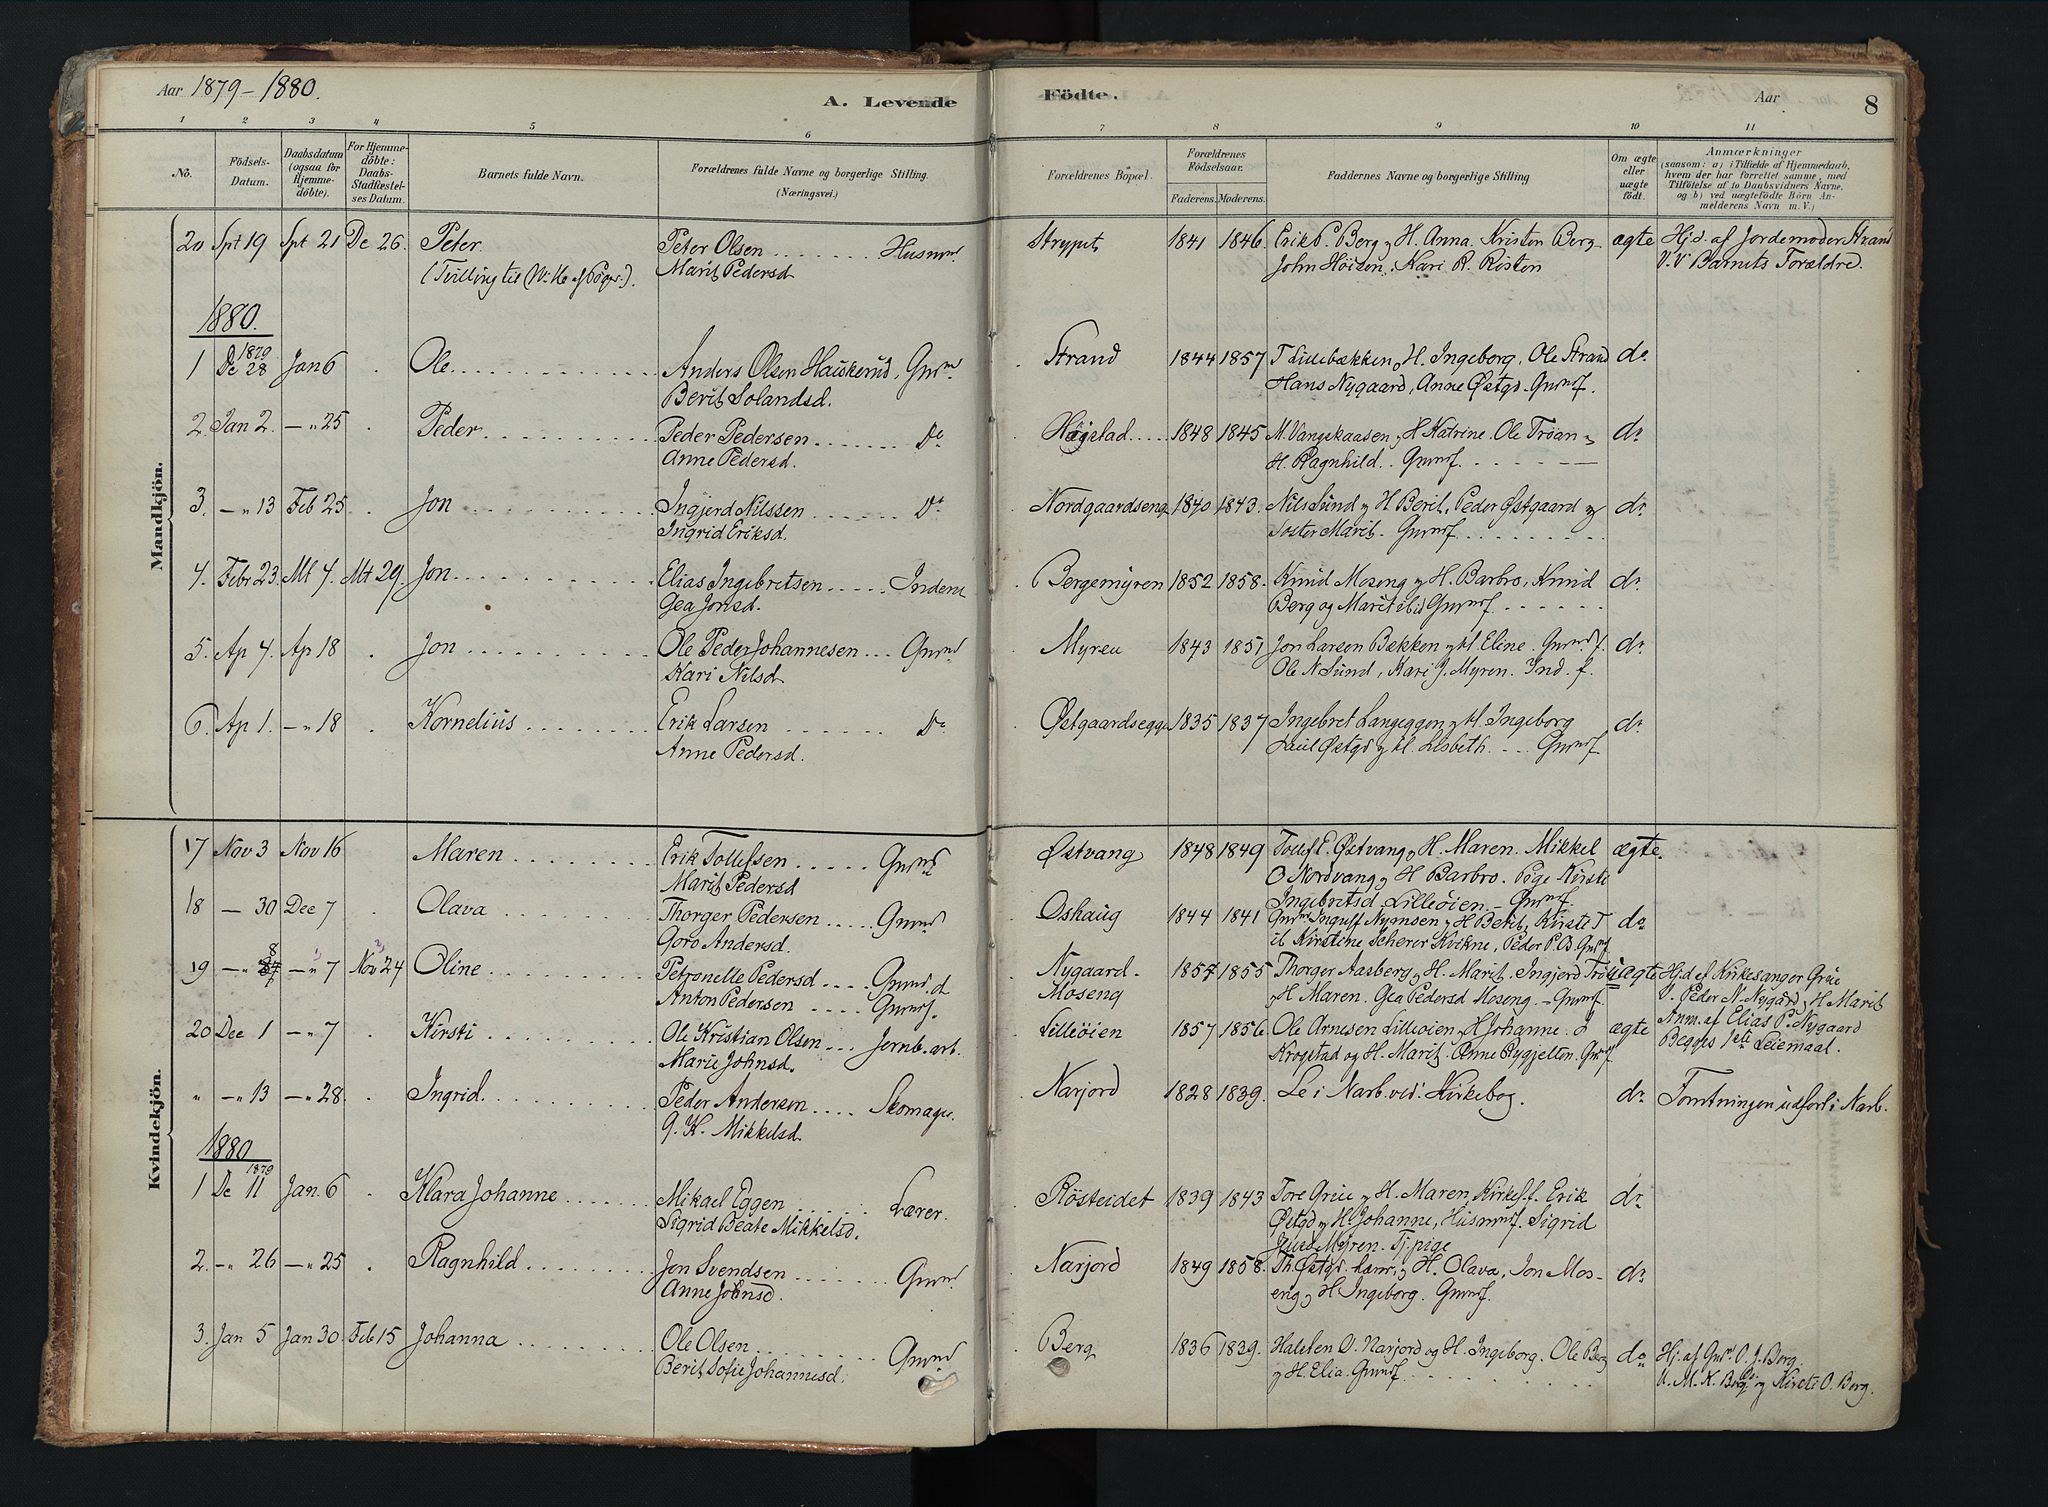 Aar 1879-1880.
A. Levende
Födte.
Aar
8
1 2 3 4 5 6 7 8 9 10 11
No.
Födsels-
Datum.
Daabsdatum
(ogsaa for
Hjemme-
döbte).
For Hjemme-
döbte:
Daabs-
Stadfæstel-
ses Datum.
Barnets fulde Navn.
Forældrenes fulde Navne og borgerlige Stilling.
(Næringsvei.)
Forældrenes Bopæl.
Forældrenes
Födselsaar.
Faderens. Moderens.
Faddernes Navne og borgerlige Stilling
Om ægte
eller
uægte
födt.
Anmærkninger
(saasom: a) i Tilfælde af Hjemmedaab,
hvem der har forrettet samme, med
Tilföielse af to Daabsvidners Navne,
og b) ved uægtefödte Börn An-
melderens Navn m. V.)
Mandkjön.
20 Spt 19 Spt 21 De 26. Peter Peter Olsen Husmd. Strypet 1841 1846. Erik P. Berg og H. Anna. Kristen Berg ægte Hjd. af Jordemoder Strand
(Tvilling til Marit Pedersd John Höisen, Kari R. Risten V. V Barnets Forældre.
1880.
1879
1 De 28 Jan 6 Ole Anders Olsen Gmd Strand 1844 1857 T Lillebækken og H. Ingeborg, Ole Strand do
Berit Solandsd. Hans Nygaard, Anne Østgd. Gmdf.
2. Jan 2. -"- 25 Peder Peder Pedersen Do Høistad 1848 1845 M. Vangskaasen og H Katrine. Ole Tröan og do
Anne Pedersd. H. Ragnhild. Gmdf.
3. -"- 13 Feb 25 Jon Ingjerd Nilssen Do Nordgaardseng 1840 1843. Nils Sund og H Berit, Peder Østgaard og do
Ingrid Eriksd. Söster Marit. Gmdf.
4. Febr 23. Mt 7. Mt 29. Jon Elias Ingebretsen Inderst Bergemyren 1852 1858. Knud Moseng og H. Barbro, Knud do
Gea Jonsd. Berg og Marit ibid Gmdf.
5. Ap 4. Ap 18 Jon Ole Peder Johannesen Gmd Myren 1843 1851 Jon Larsen Bækken og H Eline. Gmdf. do
Kari Nilsd Ole N Sund, Kari J. Myren. Ind. f.
6. Ap 1. -"- 18 Kornelius Erik Larsen Do Østgaardsegge 1835 1837 Ingebret Langeggen og H. Ingeborg do
Anne Pedersd. Østgd og H. Lisbeth. Gmdf.
Kvindekjön.
17 Nov 3 Nov 16 Maren Erik Tollefsen Gmd Østvang 1848 1849 Østvang og H. Maren. Mikkel ægte.
Marit Pedersd O Nordvang og H Barbro. Pige Kirsti
Ingebretsd Lilleöien. Gmdf.
18 - 30 Dec 7 Olava Thorger Pedersen Gmd Oshaug 1844 1841 Nymsen og H Berit, Kirsti T do
Goro Andersd. Kirstine Scherer Kvikne, Peder P. B. Gmdf
19 -"- 8 -"- 7 Nov 24 Oline Petronelle Pedersd Gmd. d Nygaard. 1857 1855 Thorger Aasberg og H. Marit, Ingjerd Trö uægte Hjd af Kirkesanger Grue
Anton Pedersen Gmdf. Moseng og H Maren. Gea Pedersd Moseng. Gmdf. V. Peder N. Nygård, H Marit
20 Dec 1 -"- 7 Kirsti Ole Kristian Olsen Jernb. arb. Lilleöien 1857 1856. Ole Arnesen Lilleöien og H Johanne. J ægte Anm. af Elias P. Nygaard
Marie Johnsd. Krogstad og H. Marit. Anne Rygjelten. Gmdf Begges 1ste Leiemaal.
" -"- 13 -"- 28. Ingrid. Peder Andersen Skomager. Narjord 1828 1839. Se i Narb. vid. Kirkebog. do Forretningen udfört i Narb.
G. K. Mikkelsd.
1880
1879
1 De 11 Jan. 6 Klara Johanne Mikael Eggen Lærer. Rösteidet 1839 1843 Tore Grue og H. Maren, Kirkes. f. Erik do
Sigrid Beate Mikkelsd. Østgd og H. Johanne, Husmdf. Sigrid
Myren. Tj. pige
2. -"- 26 -"- 25 Ragnhild Jon Svendsen Gmd Narjord 1849 1858. Th Østgd. og H. Olava, Jon Mos- do
Anne Johnsd. eng og H Ingeborg. Gmdf.
3. Jan 5 Jan 30. Feb 15 Johanna Ole Olsen Gmd Berg 1836 1839. Halsten O. Narjord og H. Ingeborg. Ole Berg do Hj. af Gmd. O. J. Berg.
Berit Sofie Johannesd. og H. Elia. Gmdf. V. M. K. Berg og Kirsti O. Berg.